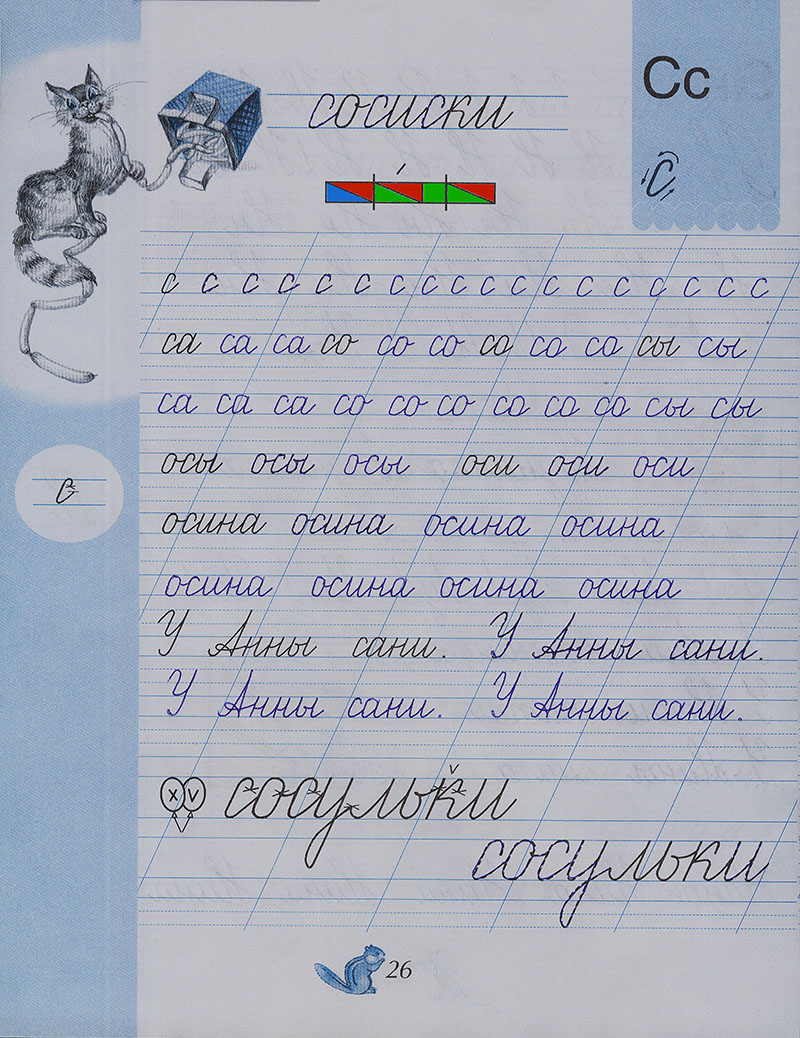 Сс
сосиски
С
с с с с с с с с с с с с с с с с с с
са са са со со со со со со сы сы
са са са со со со со со со сы сы
осы осы осы оси оси оси
с
осина осина осина осина
осина осина осина осина
У Анны сани. У Анны сани.
У Анны сани. У Анны сани.
x v сосульки
сосульки
26